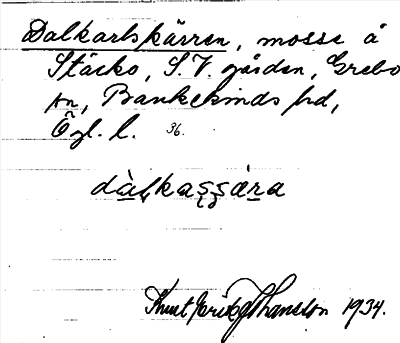 Dalkarlskärren, mosse å
Stäcko, S.V. gården, Grebo
sn, Bankekinds hd,
Ögl. l. 36.
dàlkaşşæra
Knut Erik Johansson 1934.